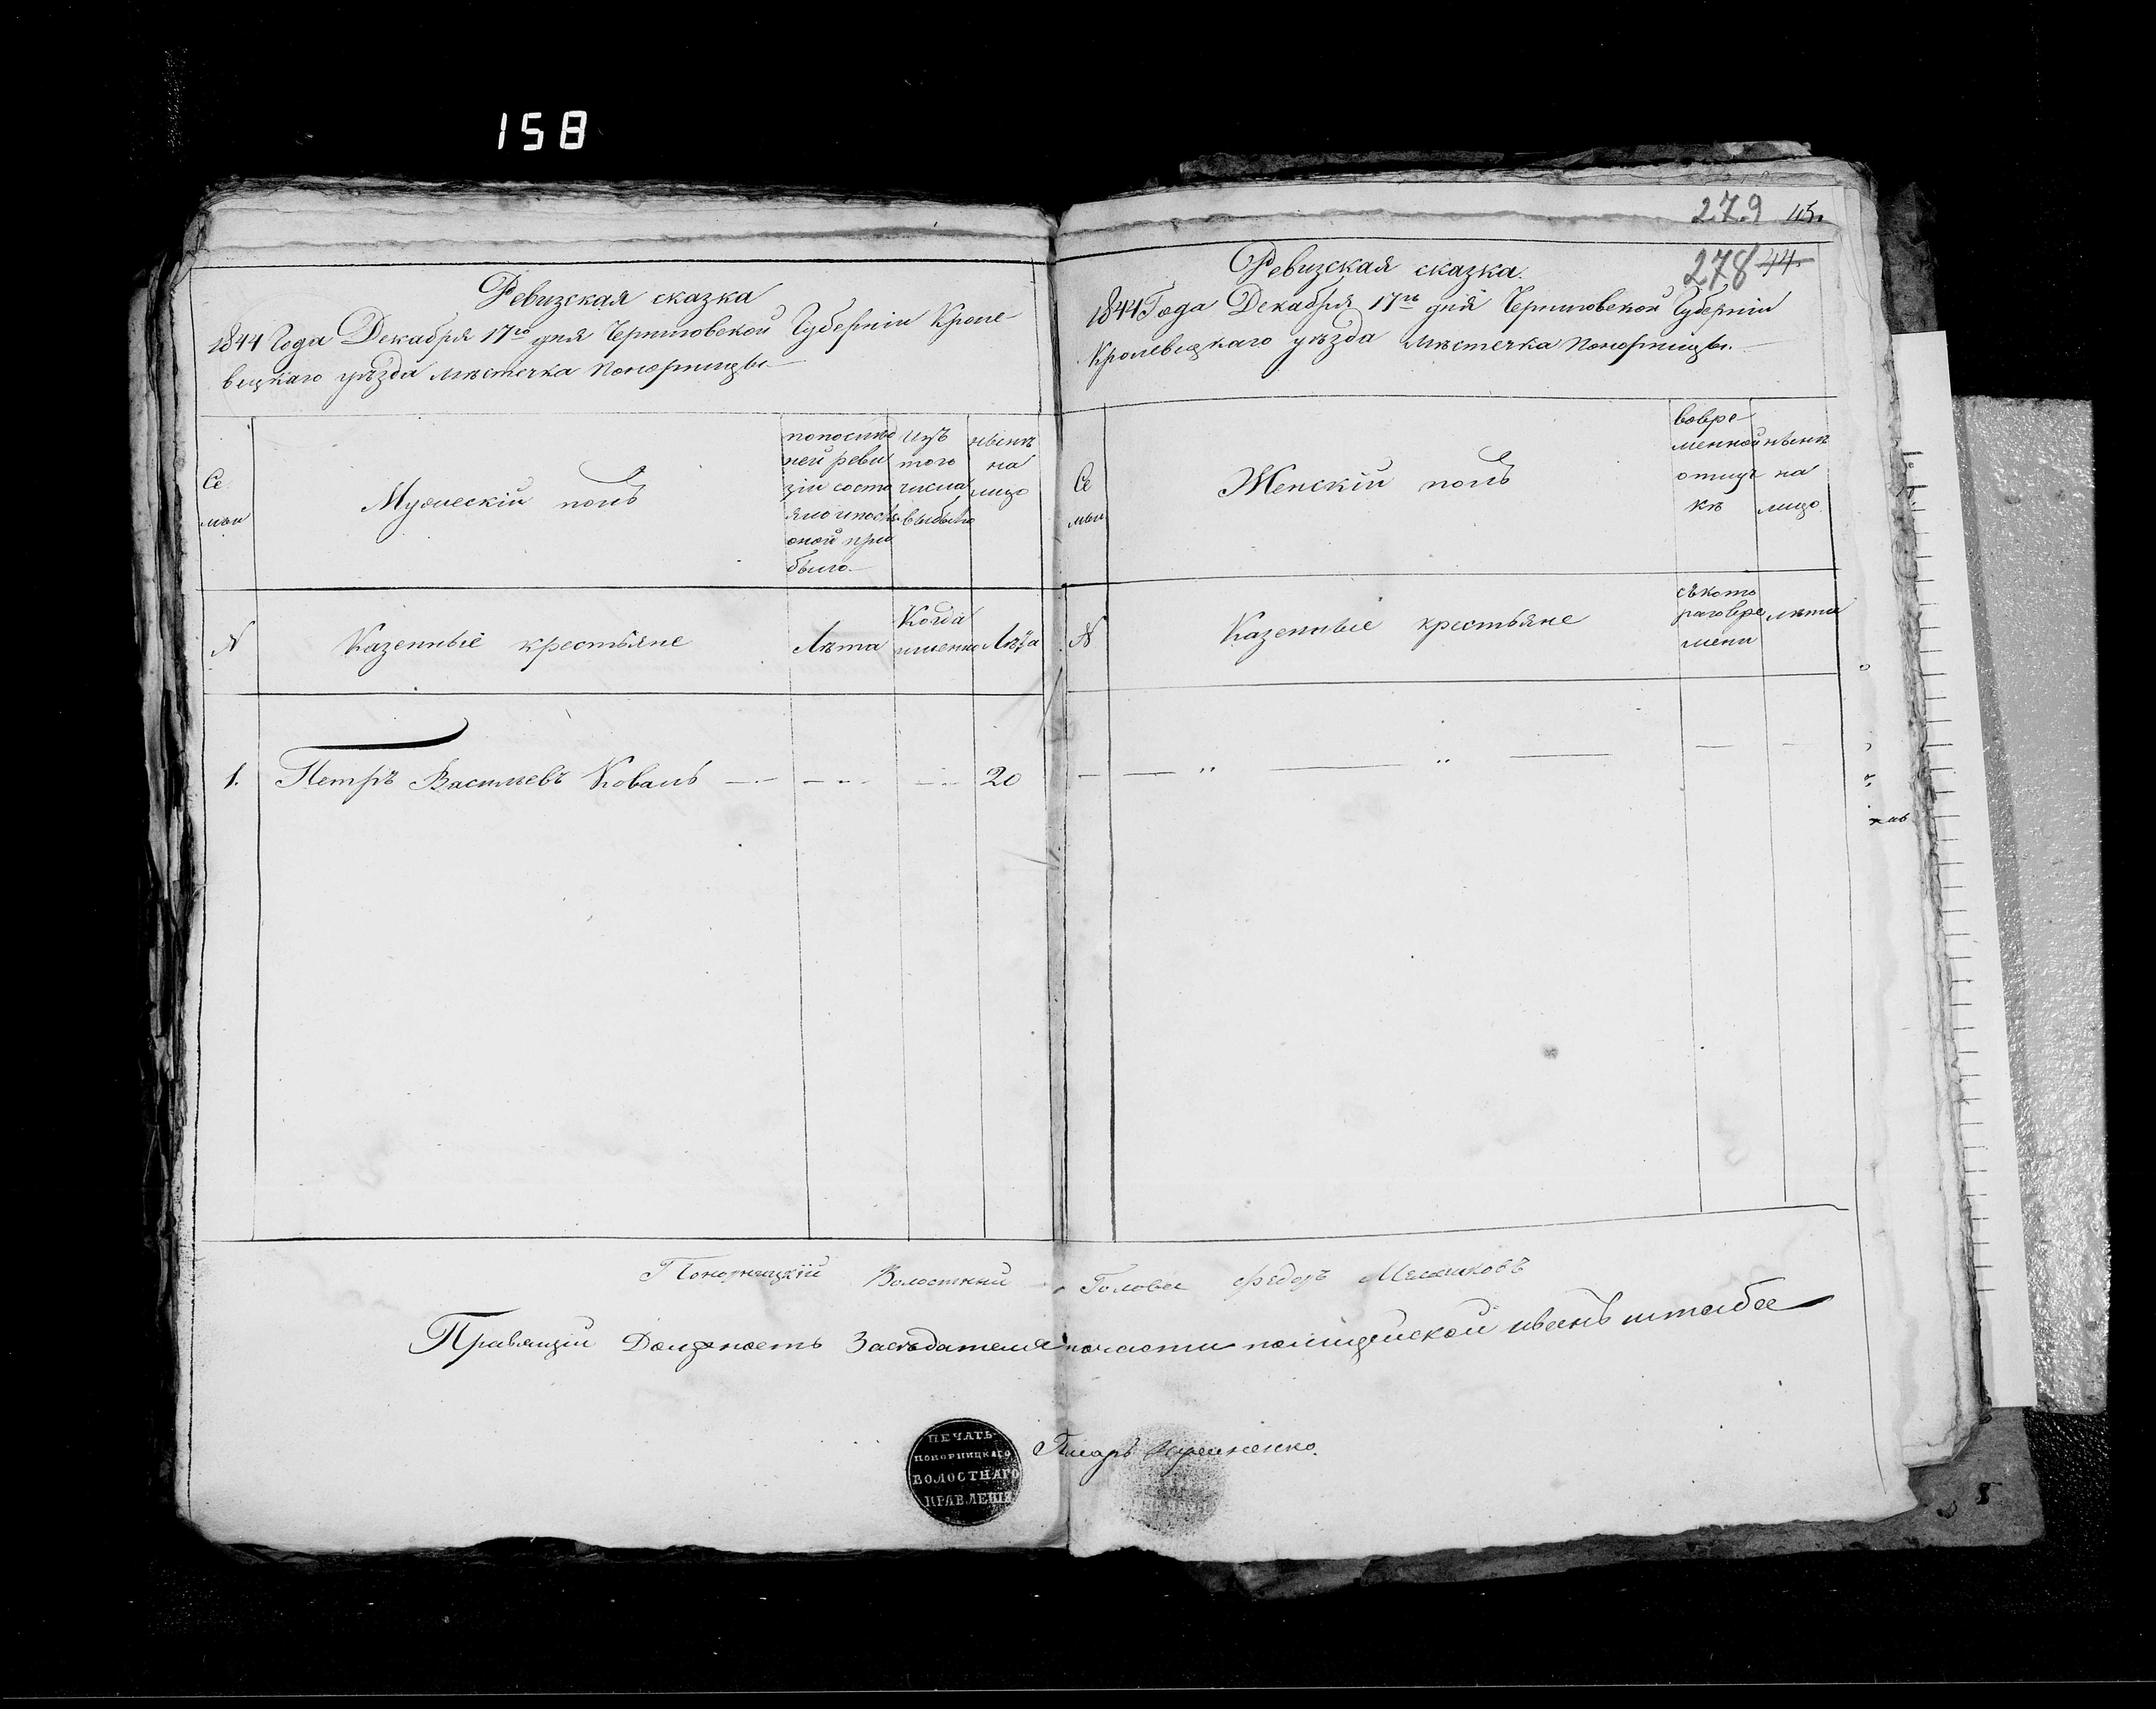 158
Ревизская сказка
1844 Года Декабря 17го дня Черниговской Губернии Кроле-
вецкаго уѣзда мѣстечка Понорницы
Се
мьи
Мужескій полъ
попослѣд
ней реви
зіи состо
яло ипослѣ
оной при
было.
изъ
того
числа
выбыло
нынѣ
на
лицо
N
Казенные крестьяне
Лѣта
Когда
именно
Лѣта
1. Петръ Васильевъ Коваль 20
279 45.
278 44.
Ревизская сказка.
1844 Года Декабря 17го дня Черниговской Губерніи
Кролевецкаго уѣзда мѣстечка Понорницы.
Се
мьи
Женскій полъ
вовре
менной
отлуч
кѣ
нынѣ
на
лицо
N
Казенные крестьяне
съкото
раговре
мени
лѣта
Понорницкій Волостный Голова Федоръ
Правящій Должность Засѣдателя почасти полицейской
Писарь
ПЕЧАТЬ
ПОНОРНИЦКАГО
ВОЛОСТНАГО
ПРАВЛЕНІЯ